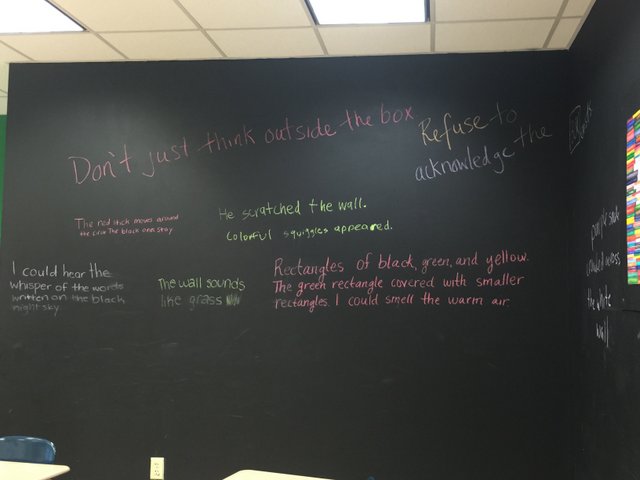 Don't just think outside the box
Refuse to
acknowledge the
The red stick moves around
the black ones stay
He scratched the wall.
Colorful squiggles appeared.
I could hear the
whisper of the words
written on the black
night sky
The wall sounds
like grass
Rectangles of black, green, and yellow.
The green rectangle covered with smaller
rectangles. I could smell the warm air.
the white
wall